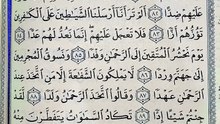 عَلَيْهِمْ ضِدًّا ٨٢ أَلَمْ تَرَ أَنَّآ أَرْسَلْنَا ٱلشَّيَٰطِينَ عَلَى ٱلْكَٰفِرِينَ
تَؤُزُّهُمْ أَزًّا ٨٣ فَلَا تَعْجَلْ عَلَيْهِمْ إِنَّمَا نَعُدُّ لَهُمْ عَدًّا ٨٤
يَوْمَ نَحْشُرُ ٱلْمُتَّقِينَ إِلَى ٱلرَّحْمَٰنِ وَفْدًا ٨٥ وَنَسُوقُ ٱلْمُجْرِمِينَ
إِلَىٰ جَهَنَّمَ وِرْدًا ٨٦ لَّا يَمْلِكُونَ ٱلشَّفَٰعَةَ إِلَّا مَنِ ٱتَّخَذَ عِندَ
ٱلرَّحْمَٰنِ عَهْدًا ٨٧ وَقَالُوا۟ ٱتَّخَذَ ٱلرَّحْمَٰنُ وَلَدًا ٨٨ لَّقَدْ
جِئْتُمْ شَيْـًٔا إِدًّا ٨٩ تَكَادُ ٱلسَّمَٰوَٰتُ يَتَفَطَّرْنَ مِنْهُ